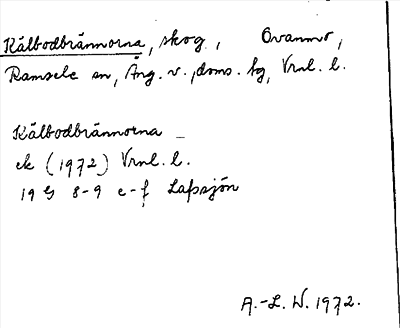 Kälbodbrännorna, skog, Ovanmo,
Ramsele sn, Ång. v., doms. hg, Vrnl. l.
Kälbodbrännorna –
ek (1972) Vrnl. l.
19 G 8-9 e-f Lafssjön
A.-L. W. 1972.